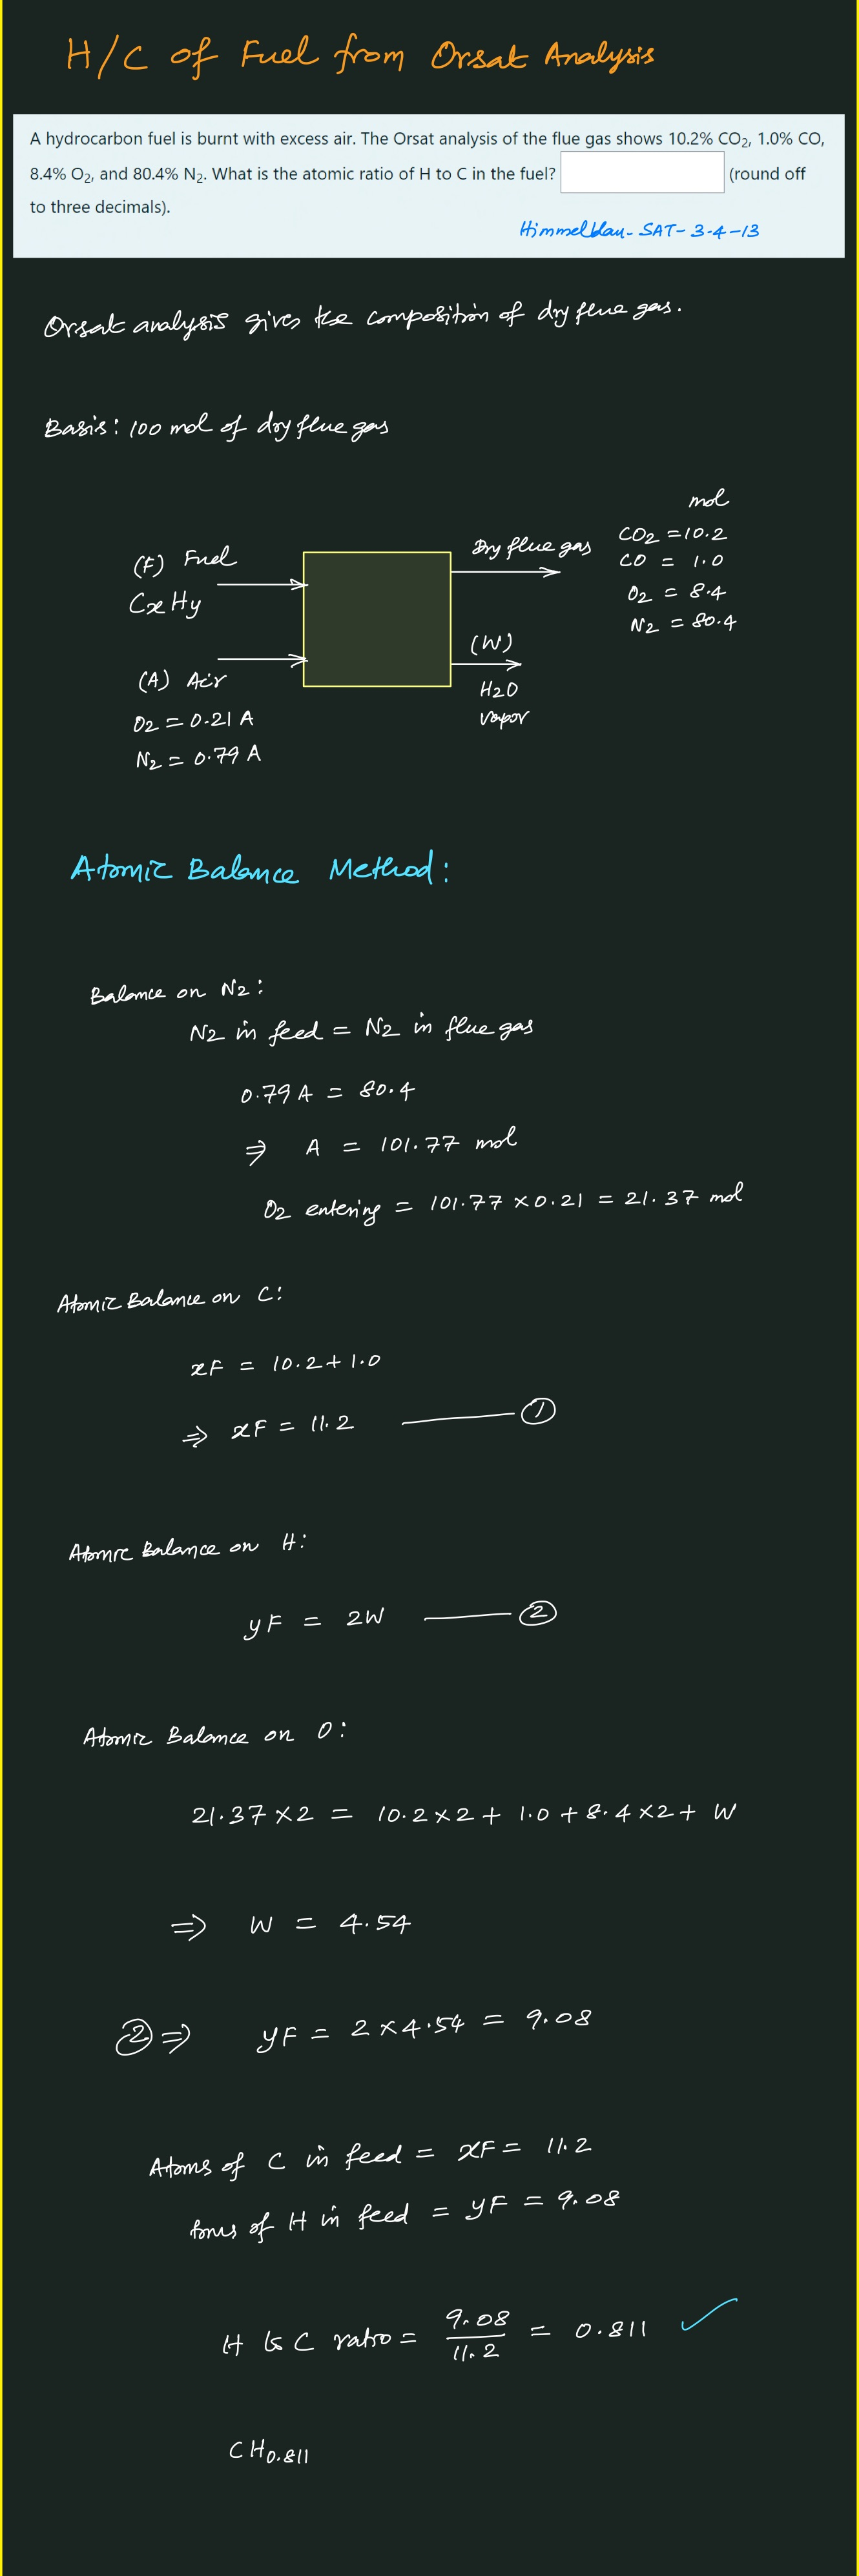 H/C of Fuel from Orsat Analysis
A hydrocarbon fuel is burnt with excess air. The Orsat analysis of the flue gas shows 10.2% CO₂, 1.0% CO,
8.4% O₂, and 80.4% N₂. What is the atomic ratio of H to C in the fuel? (round off
to three decimals).
Himmelblau - SAT - 3-4-13
Orsat analysis gives the composition of dry flue gas.
Basis: 100 mol of dry flue gas
mol
(F) Fuel
CxHy
Dry flue gas
CO2 = 10.2
CO = 1.0
O2 = 8.4
N2 = 80.4
(W)
H2O
vapor
(A) Air
O2 = 0.21 A
N2 = 0.79 A
Atomic Balance Method:
Balance on N2:
N2 in feed = N2 in flue gas
0.79 A = 80.4
⇒ A = 101.77 mol
O2 entering = 101.77 × 0.21 = 21.37 mol
Atomic Balance on C:
xF = 10.2 + 1.0
⇒ xF = 11.2 ——— ①
Atomic Balance on H:
yF = 2W ——— ②
Atomic Balance on O:
21.37 × 2 = 10.2 × 2 + 1.0 + 8.4 × 2 + W
⇒ W = 4.54
② ⇒ yF = 2 × 4.54 = 9.08
Atoms of C in feed = xF = 11.2
toms of H in feed = yF = 9.08
H to C ratio = 9.08/11.2 = 0.811 ✓
CH0.811